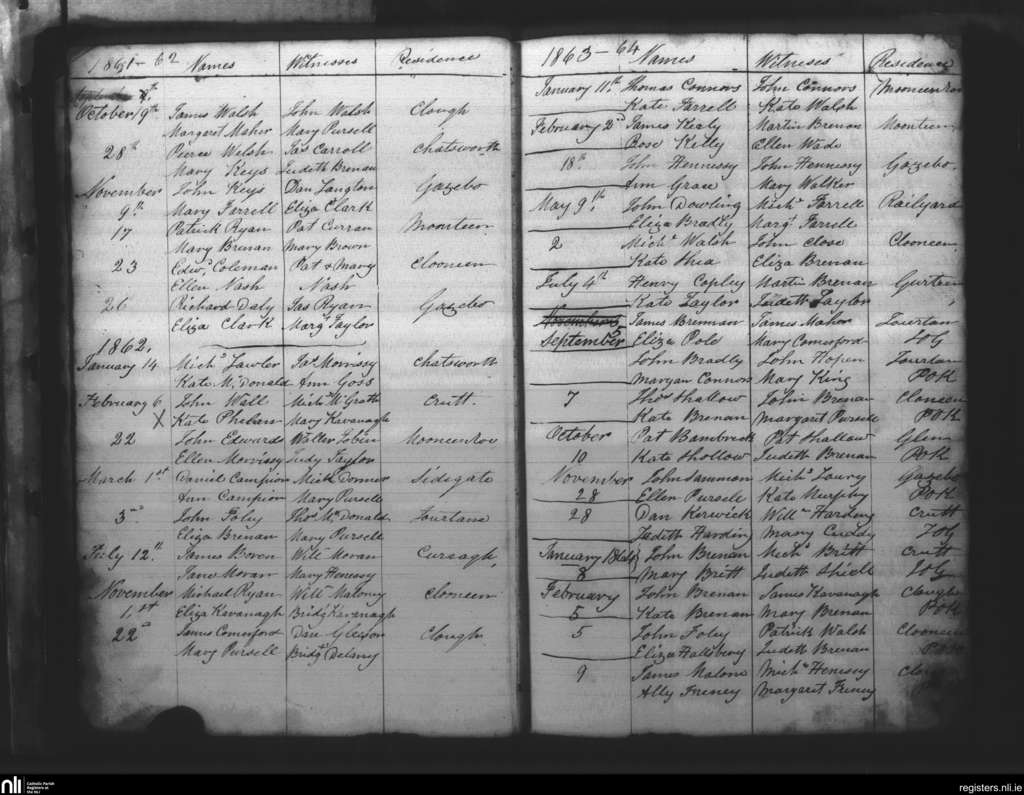 1861-62 Names Witnesses Residence
October 19th James Walsh John Walsh Clough
Margaret Maher Mary Pursell
28th Pierce Welsh Jas Carroll Chatsworth
Mary Keys Judith Brenan
November John Keys Dan Langton Gazebo
9th Mary Farrell Eliza Clark
17 Patrick Ryan Pat Curran Moonteen
Mary Brenan Mary Brown
23 Edwd Coleman Pat & Mary Clooneen
Ellen Nash Nash
26 Richard Daly Jas Ryan Gazebo
Eliza Clark Margt Taylor
1862.
January 14 Michl Lawler Jas Morrissy Chatsworth
Kate McDonald Ann Goss
February 6 John Wall Michl McGrath Crutt
X Kate Phelan Mary Kavanagh
22 John Edwards Walter Tobin Mooneenroe
Ellen Morrissy Judy Taylor
March 1st Daniel Campion Mick Dormer Sidegate
Ann Campion Mary Pursell
3rd John Foley Thos McDonald Tourtane
Eliza Brenan Mary Pursell
July 12th James Boven Willm Moran
Jane Moran Mary Henessy
November Michael Ryan Willm Maloney Clooneen
1st Eliza Kavanagh Bridgt Kavanagh
22d James Comerford Dan Gleeson Clough
Mary Pursell Bridgt Delaney
1863-64 Names Witneses Residence
January 11th Thomas Connors John Connors Mooneenroe
Kate Farrell Kate Walsh
February 2d James Kealy Martin Brenan Moonteen
Rose Kelly Ellen Wade
18th John Hennessy John Hennessy Gazebo
Ann Grace Mary Walker
May 9th John Dowling Michl Farrell Railyard
Eliza Bradly Margt Farrell
2 Michl Walsh John Close Clooneen
Kate Shea Eliza Brenan
July 4th Henry Copley Martin Brenan Gurteen
Kate Taylor Judith Taylor
Novembers James Brennan James Maher Tourtan
September 5 Eliza Pole Mary Comerford JoG
John Bradly John Hopen Tourtan
Maryan Connors Mary King POK
7 Thos Shallow John Brenan Clooneen
Kate Brenan Margaret Pursell POK
October Pat Bambrick Pat Shallow Glenn
10 Kate Shollow Judith Brenan POK
November John Sammon Michl Loury Gazebo
28 Ellen Pursell Kate Murphy POK
28 Dan Kerwick Willm Harding Crutt
Judith Harding Mary Cuddy JoG
January 1864 John Brenan Michl Britt Crutt
8 Mary Britt Judith Shiell JoG
February John Brenan James Kavanagh Clough
5 Kate Brenan Mary Brenan POK
5 John Foley Patrick Walsh Clooneen
Eliza Hallsbery Judith Brenan POK
9 James Malone Michl Henessy
Ally Freney Margaret Freney
nli Catholic Parish Registers at the NLI
registers.nli.ie